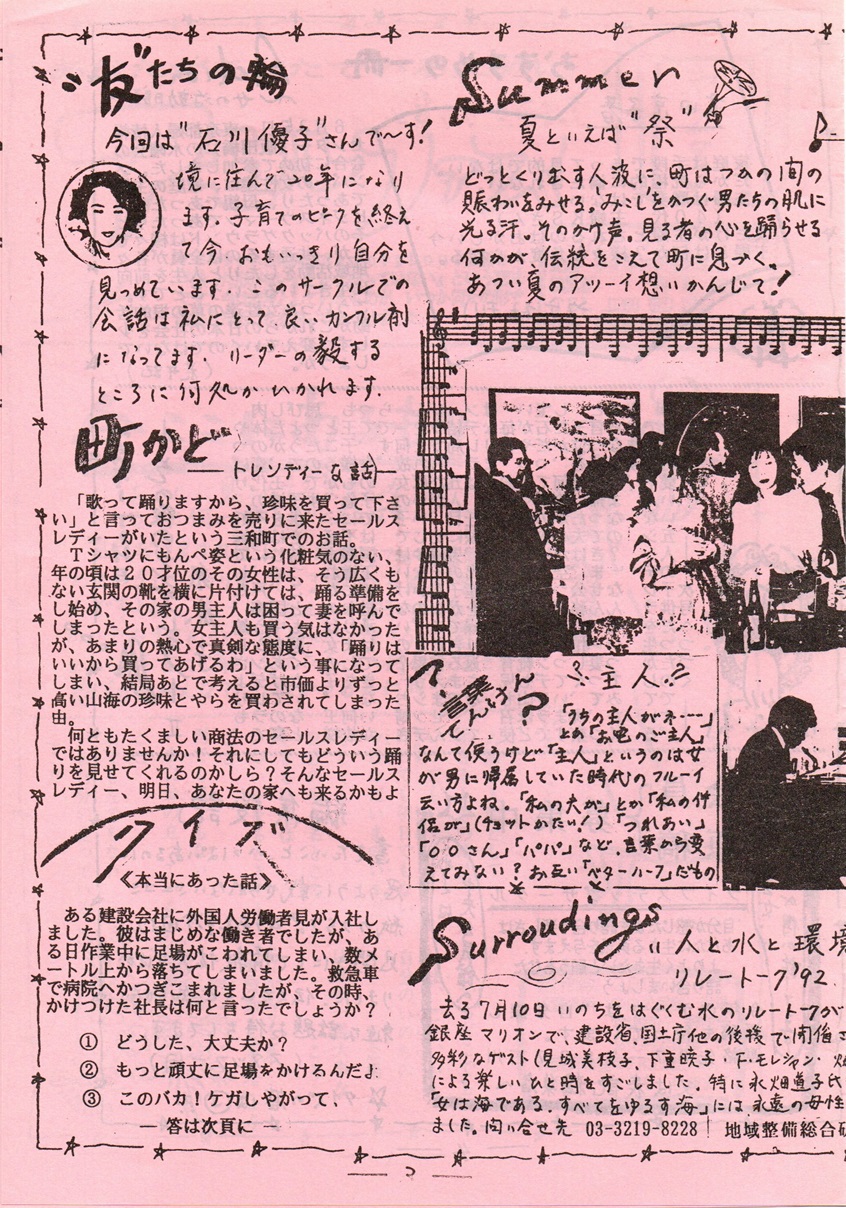 "友"たちの輪
今回は"石川優子"さんで〜す!
境に住んで20年になり
ます。子育てのピークを終え
て今、おもいっきり自分を
見つめています。このサークルでの
会話は私にとって、良いカンフル剤
になってます。リーダーの毅する
ところに何処かひかれます。
町かど
—トレンディーな話—
「歌って踊りますから、珍味を買って下さ
い」と言っておつまみを売りに来たセールス
レディーがいたという三和町でのお話。
Tシャツにもんぺ姿という化粧気のない、
年の頃は20才位のその女性は、そう広くも
ない玄関の靴を横に片付けては、踊る準備を
し始め、その家の男主人は困って妻を呼んで
しまったという。女主人も買う気はなかった
が、あまりの熱心で真剣な態度に、「踊りは
いいから買ってあげるわ」という事になって
しまい、結局あとで考えると市価よりずっと
高い山海の珍味とやらを買わされてしまった
由。
何ともたくましい商法のセールスレディー
ではありませんか!それにしてもどういう踊
りを見せてくれるのかしら?そんなセールス
レディー、明日、あなたの家へも来るかもよ
クイズ
《本当にあった話》
ある建設会社に外国人労働者見が入社し
ました。彼はまじめな働き者でしたが、あ
る日作業中に足場がこわれてしまい、数メ
ートル上から落ちてしまいました。救急車
で病院へかつぎこまれましたが、その時、
かけつけた社長は何と言ったでしょうか?
① どうした、大丈夫か?
② もっと頑丈に足場をかけるんだ』
③ このバカ!ケガしやがって、
— 答は次頁に —
Summer
夏といえば"祭"
どっとくりだす人波に、町はつかの間の
賑わいをみせる。'みこし'をかつぐ男たちの肌に
光る汗。そのかけ声。見る者の心を踊らせる
何かが、伝統をこえて町に息づく。
あつい夏のアツーイ想いかんじて!
言葉
てんけん
?
主人
「うちの主人がネ……」
とか「お宅のご主人」
なんて使うけど「主人」というのは女
が男に帰属していた時代のフルーイ
云い方よね。「私の夫が」とか「私の伴
侶が」(チョットかたい!)「つれあい」
「〇〇さん」「パパ」など、言葉から変
えてみない?お互い「ベターハーフ」だもの
Surroudings
"人と水と環境
リレートーク'92
去る7月10日いのちをはぐくむ水のリレートークが
銀座マリオンで、建設省、国土庁他の後援で開催さ
多彩なゲスト(見城美枝子、下重暁子・F・モレシャン・
による楽しいひと時をすごしました。特に永畑道子氏
「女は海である。すべてをゆるす海」には、永遠の母性
ました。問い合せ先 03-3219-8228 地域整備総合研
— 2 —